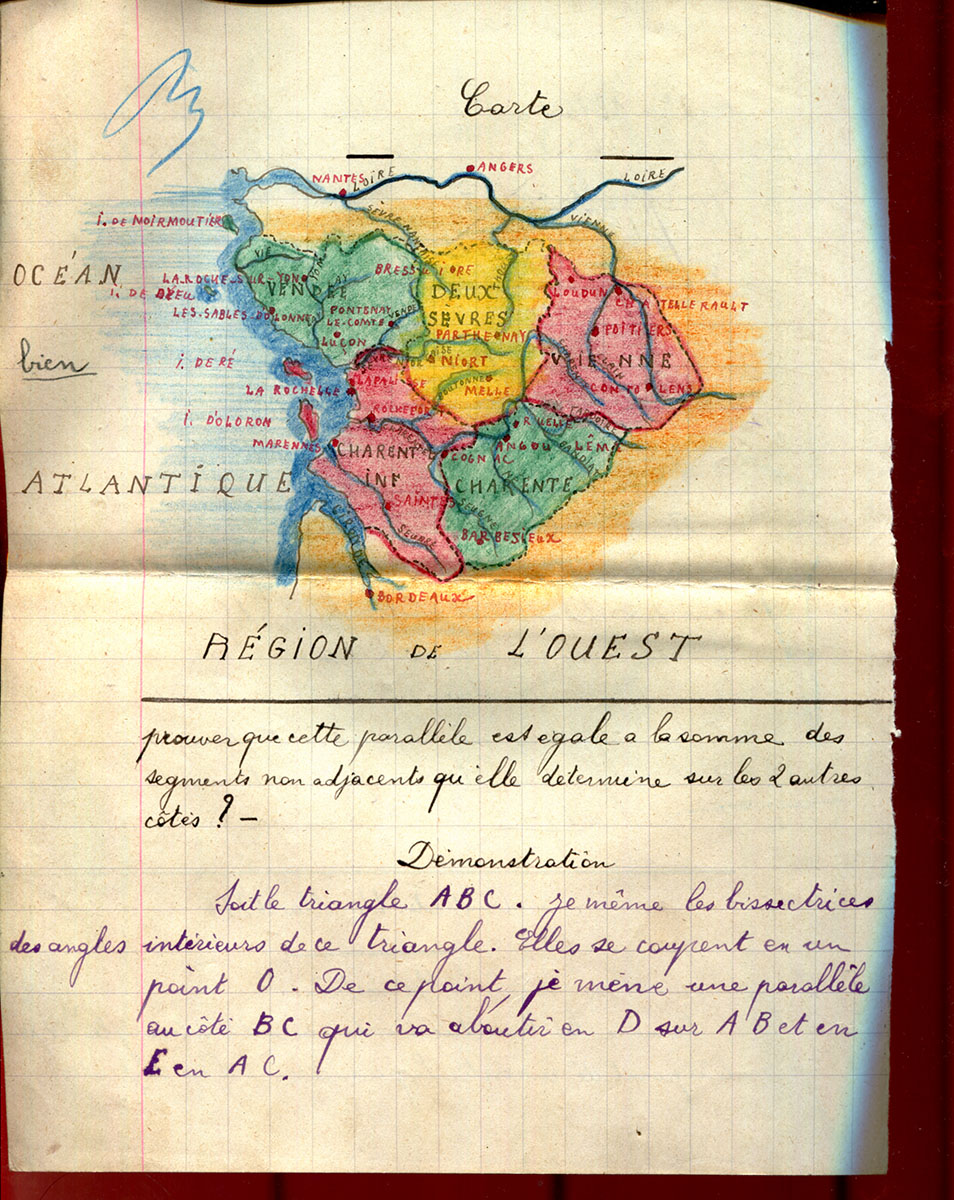 Carte
NANTES
LOIRE
ANGERS
LOIRE
VIENNE
SÈVRE NANTAISE
I. DE NOIRMOUTIER
OCÉAN
VIE
LA.ROCHE-SUR-YON
BRESSUIRE
VENDÉE
DEUX
SEVRES
LOUDUN
CHATELLERAULT
I. DE DYEU
LES-SABLES DOLONNE
FONTENAY
LE-COMTE
VENDÉE
LUÇON
PARTHENAY
POITIERS
VIENNE
bien
I. DE RÉ
NIORT
LA ROCHELLE
LAPALISSE
MELLE
CONFOLENS
ROCHEFORT
I. D'OLORON
RUELLE
MARENNES
CHARENTE
INF
ANGOULÊME
COGNAC
ATLANTIQUE
CHARENTE
SAINTES
SEUGNE
GIRONDE
BARBESIEUX
BORDEAUX
RÉGION DE L'OUEST
prouver que cette parallèle est égale a la somme des
segments non adjacents qu'elle détermine sur les 2 autres
côtés ? –
Démonstration
Soit le triangle ABC. je même les bissectrices
des angles intérieurs de ce triangle. Elles se coupent en un
point O. De ce point, je mène une parallèle
au côté BC qui va aboutir en D sur AB et en
E en AC.